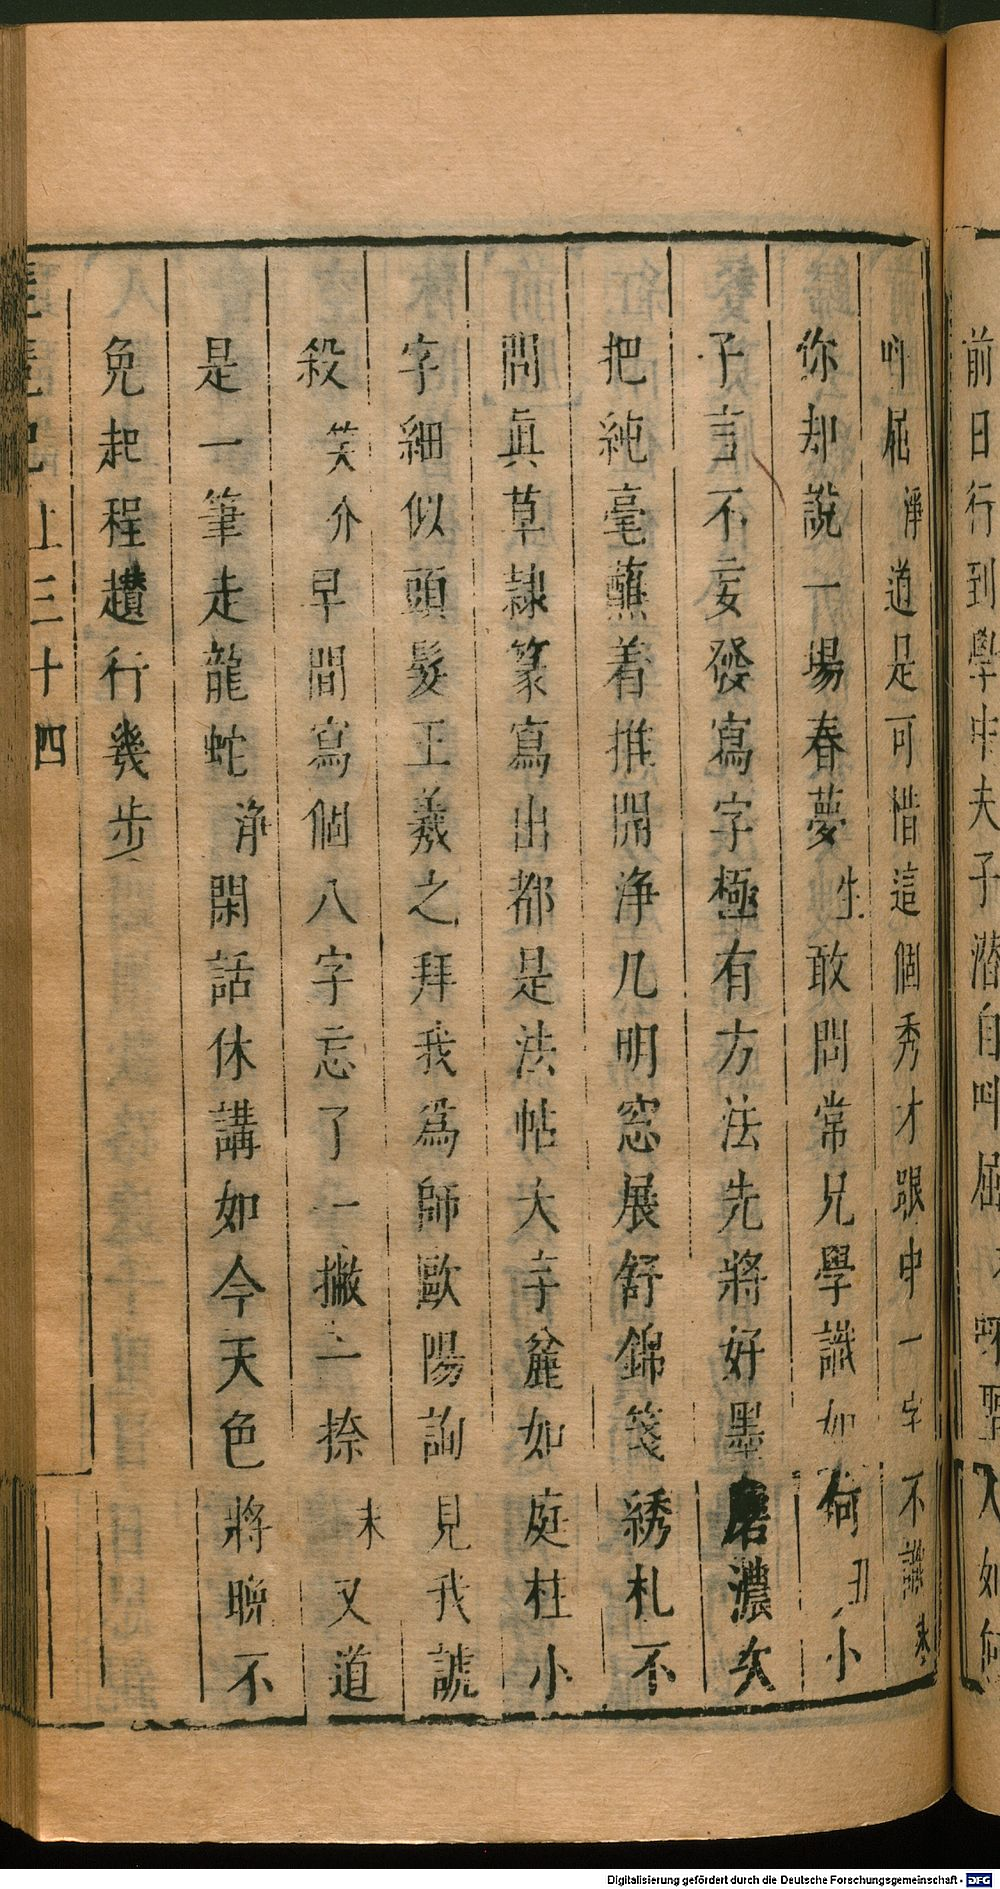 前日行到學中夫子潛自叫屈
聖人如何
叫屈淨道是可惜這個秀才跟中一字不識末
你却說一場春夢生敢問常兄學識如何丑小
子言不妄發寫字極有方法先將好墨磨濃次
把純毫蘸着推開淨几明窓展舒錦箋綉札不
問真草隷篆寫出都是法帖大字麄如庭柱小
字細似頭髮王羲之拜我為師歐陽詢見我諕
殺笑介早間寫個八字忘了一撇一捺末又道
是一筆走龍蛇淨閑話休講如今天色將晩不
免起程趲行幾步
琵琶記上三十四
Digitalisierung gefördert durch die Deutsche Forschungsgemeinschaft - DFG